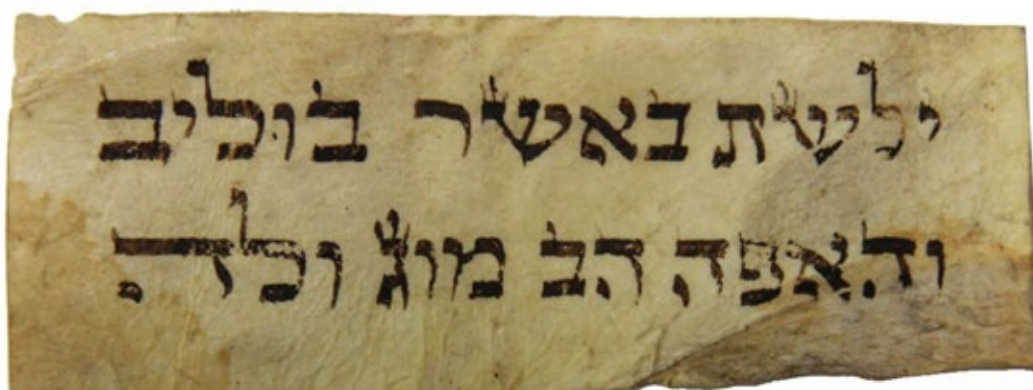 ילשת באשר בוליב
והאפה הב מוג ולה